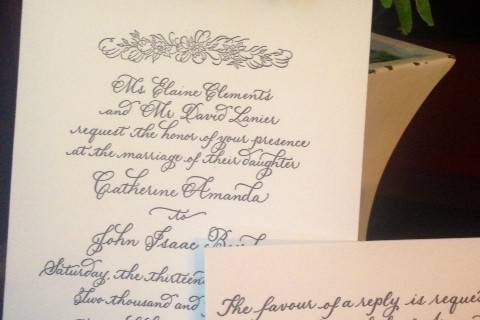 Ms Elaine Clements
and Mr David Lanier
request the honor of your presence
at the marriage of their daughter
Catherine Amanda
to
John Isaac
Saturday, the thirteen
Two thousand and
The favour of a reply is reque